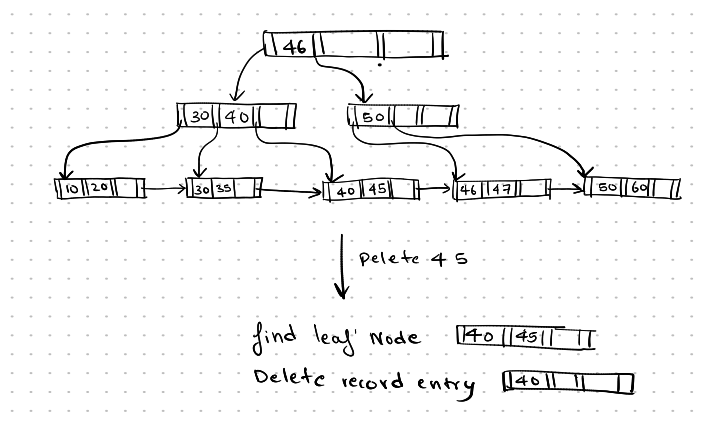 46
30 40
50
10 20
30 35
40 45
46 47
50 60
Delete 45
find leaf Node 40 45
Delete record entry 40